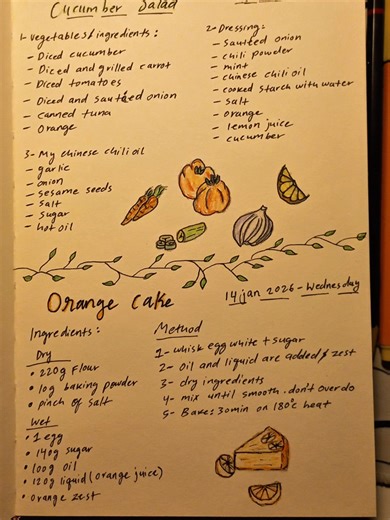 Cucumber Salad
1- Vegetables & ingredients:
- Diced cucumber
- Diced and grilled carrot
- Diced tomatoes
- Diced and sautted onion
- canned tuna
- Orange
2- Dressing:
- sautted onion
- chili powder
- mint
- chinese chili oil
- cooked starch with water
- salt
- orange
- lemon juice
- cucumber
3- My chinese chili oil
- garlic
- onion
- sesame seeds
- salt
- sugar
- hot oil
Orange cake
14 jan 2026 - Wednesday
Ingredients:
Dry
• 220g flour
• 10g baking powder
• pinch of salt
Wet
• 1 egg
• 140g sugar
• 100g oil
• 120g liquid (orange juice)
• orange zest
Method
1- whisk egg white + sugar
2- oil and liquid are added & zest
3- dry ingredients
4- mix until smooth. don't over do
5- Bake: 30min on 180°c heat